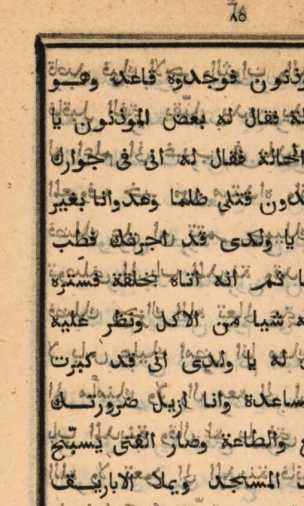 ٨٥
وذنون فوجدوه قاعد وهو
فقال له بعض الموذنون يا
الحالة فقال له انى فى جوارك
قتلى ظلما وعدوانا بغير
يا ولدى قد اجرتك فطب
ثم انه اتاه بخلقة فستره
شيا من الاكل ونظر عليه
له يا ولدى انى قد كبرت
وانا ازيل ضرورتك
والطاعة وصار الفتى يسبح
المسجد ويملا الاباريق